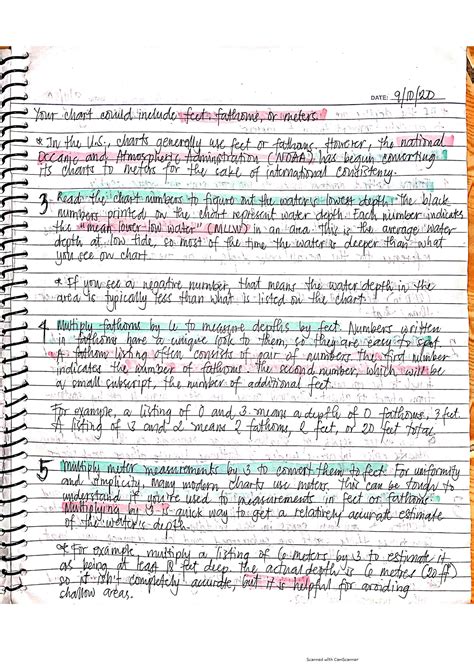 DATE: 9/10/20
Your chart could include feet, fathoms, or meters.
* In the U.S., charts generally use feet or fathoms. However, the national
Oceanic and Atmospheric Administration (NOAA) has begun converting
its charts to meters for the sake of international consistency.
3 Read the chart numbers to figure out the water's lowest depth. The black
numbers printed on the chart represent water depth. Each number indicates
the "mean lower-low water" (MLLW) in an area. This is the average water
depth at low tide, so most of the time the water is deeper than what
you see on chart.
* If you see a negative number, that means the water depth in the
area is typically less than what is listed on the chart.
4 Multiply fathoms by 6 to measure depths by feet. Numbers written
in fathoms have a unique look to them, so they are easy to spot.
A fathom listing often consists of pair of numbers. the first number
indicates the number of fathoms. the second number, which will be
a small subscript, the number of additional feet.
For example, a listing of 0 and 3 means a depth of 0 fathoms, 3 feet.
A listing of 3 and 2 means 3 fathoms, 2 feet, or 20 feet total
5 Multiply meter measurements by 3 to convert them to feet. For uniformity
and simplicity, many modern charts use meters. this can be tough to
understand if you're used to measurements in feet or fathoms.
Multiplying by 3 is quick way to get a relatively accurate estimate
of the water's depth.
* For example, multiply a listing of 6 meters by 3 to estimate it
as being at least 18 feet deep. the actual depth is 6 metres (20 ft)
so it isn't completely accurate, but it is helpful for avoiding
shallow areas.
Scanned with CamScanner